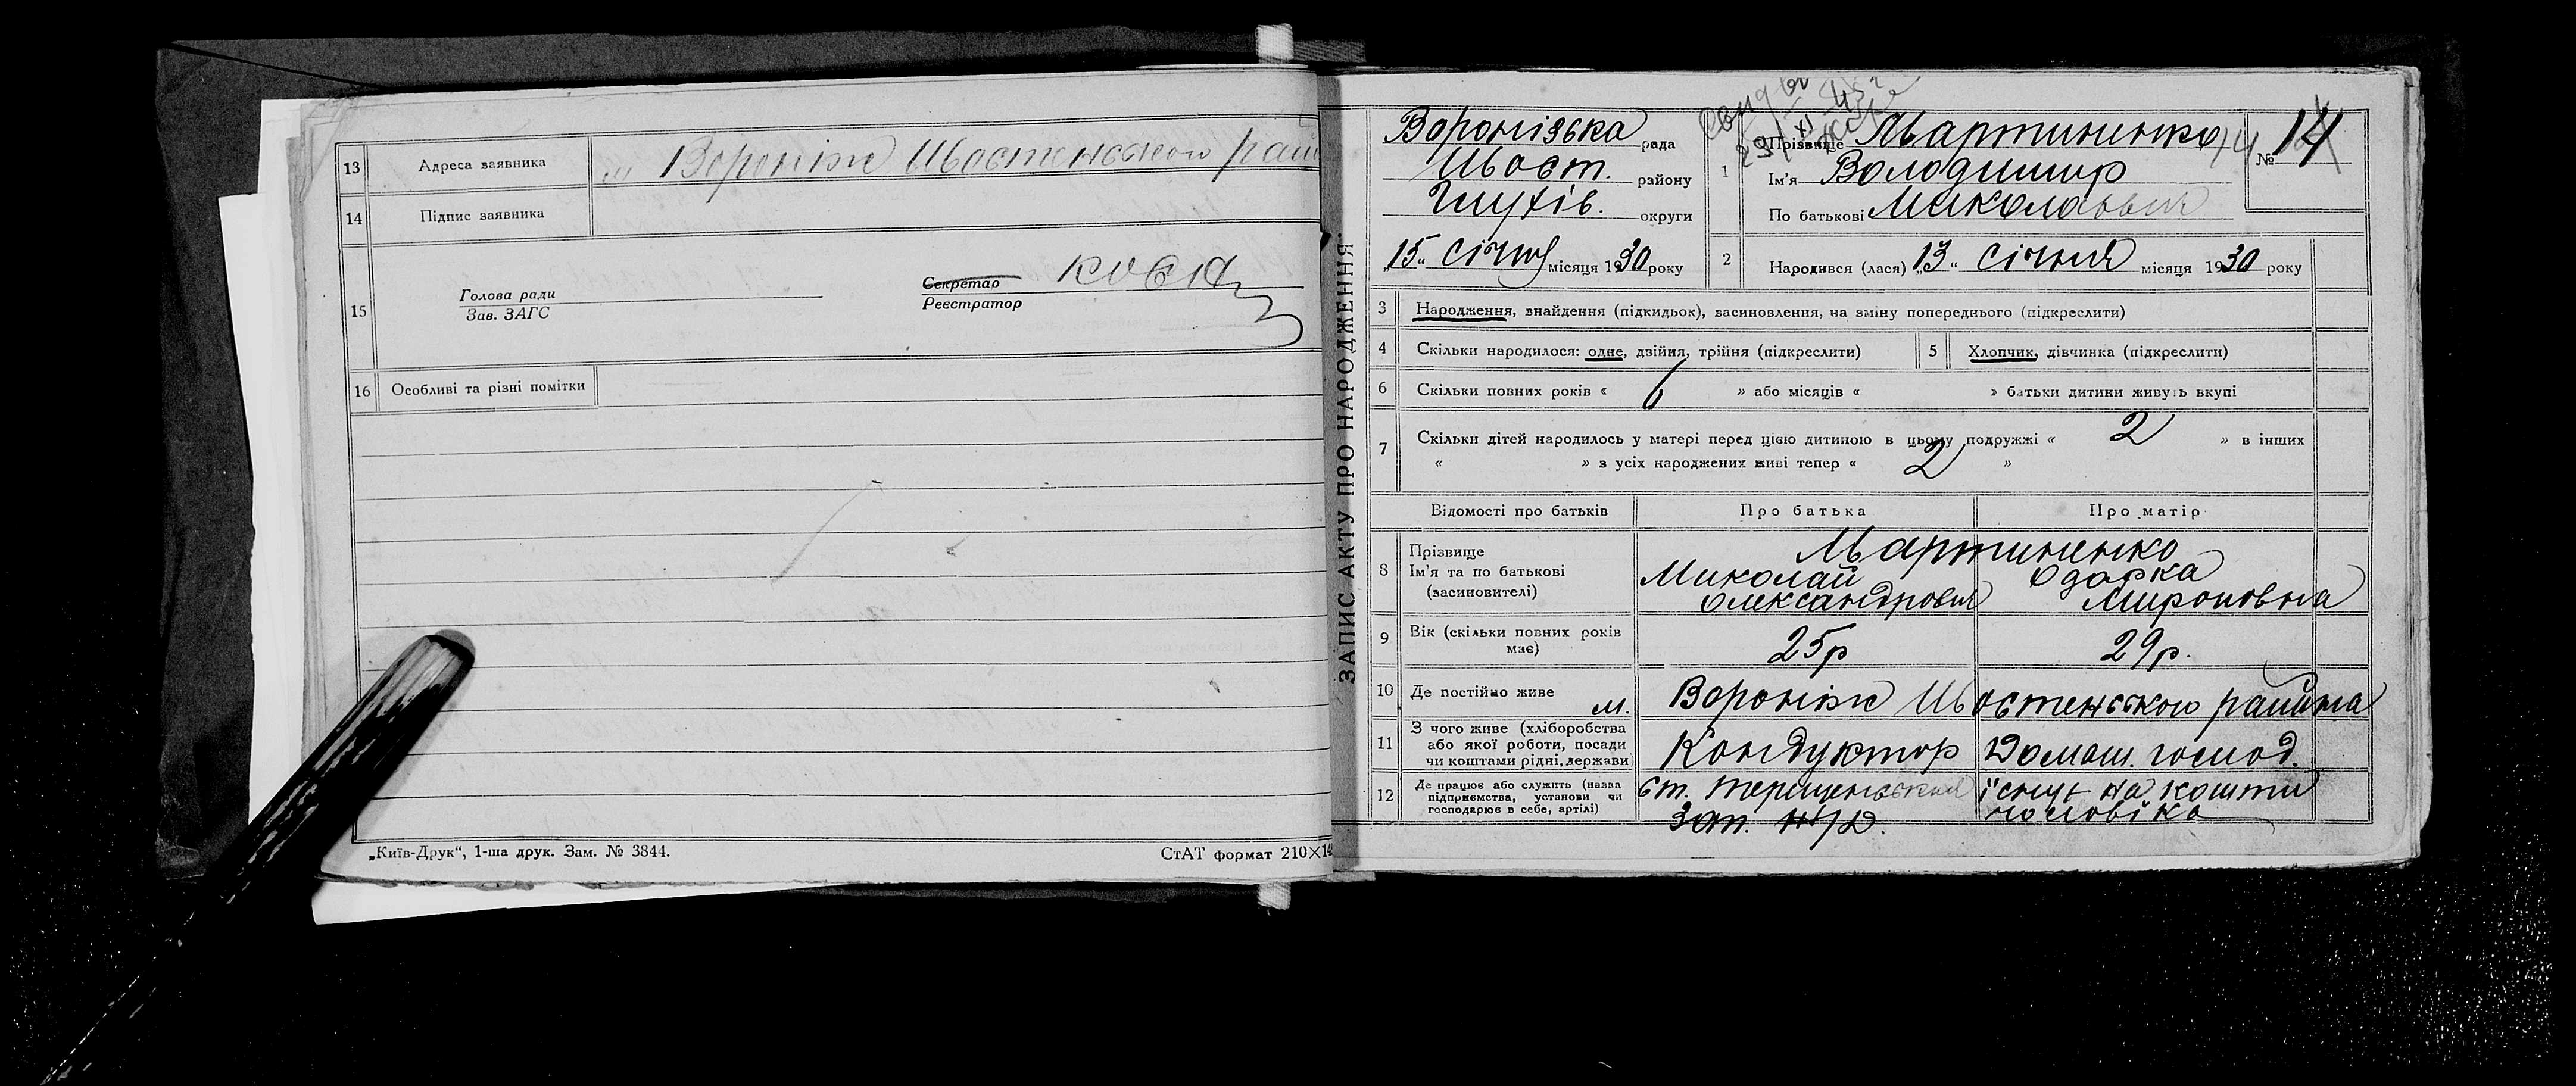 13 Адреса заявника „ Вороніж Шостенського рай
14 Підпис заявника
15 Голова ради
Зав. ЗАГС
Секретар
Реєстратор
16 Особливі та різні помітки
„Київ-Друк“, 1-ша друк. Зам. № 3844.
СтАТ формат 210×14
ЗАПИС АКТУ ПРО НАРОДЖЕННЯ
Воронізька рада
Шост. району
Глухів. округи
„15“ січня місяця 1930 року
1 Прізвище Мартиненко
Ім'я Володимир
По батькові Миколаович
№ 14
2 Народився (лася) „13“ січня місяця 1930 року
3 Народження, знайдення (підкидьок), засиновлення, на зміну попереднього (підкреслити)
4 Скільки народилося: одне, двійня, трійня (підкреслити)
5 Хлопчик, дівчинка (підкреслити)
6 Скільки повних років « 6 » або місяців « » батьки дитини живуть вкупі
7 Скільки дітей народилось у матері перед цією дитиною в цьому подружжі « 2 » в інших
« » з усіх народжених живі тепер « 2 »
Відомості про батьків Про батька Про матір
8 Прізвище Мартиненко
Ім'я та по батькові Миколай Одарка
(засиновителі) Олександрович Мироновна
9 Вік (скільки повних років має) 25р 29р.
10 Де постійно живе м. Вороніж Шостенського района
11 З чого живе (хліборобства або якої роботи, посади чи коштами рідні, держави) Кондуктор Домаш. господ.
12 Де працює або служить (назва підприємства, установи чи господарює в себе, артілі) ст. Терещенська Зап. ж/д. існує на кошти чоловіка